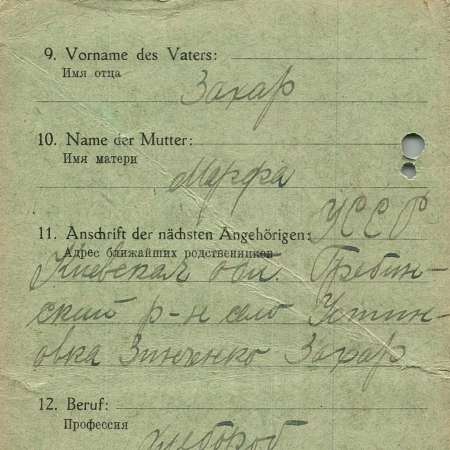 9. Vorname des Vaters:
Имя отца
Захар
10. Name der Mutter:
Имя матери
Марфа
УССР
11. Anschrift der nächsten Angehörigen:
Адрес ближайших родственников
Киевская обл. Гребин-
ский р-н село Устин-
овка Зинченко Захар
12. Beruf:
Профессия
хлебороб